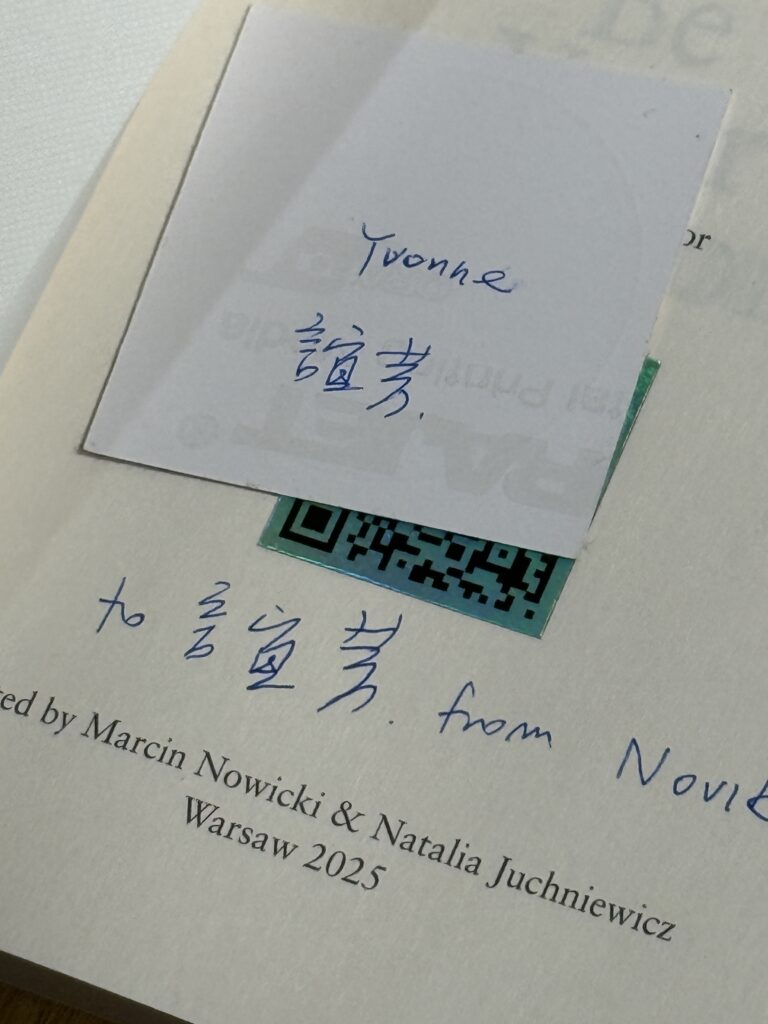 Be
or
Yvonne
誼芳.
to 誼芳. from
ed by Marcin Nowicki & Natalia Juchniewicz
Warsaw 2025